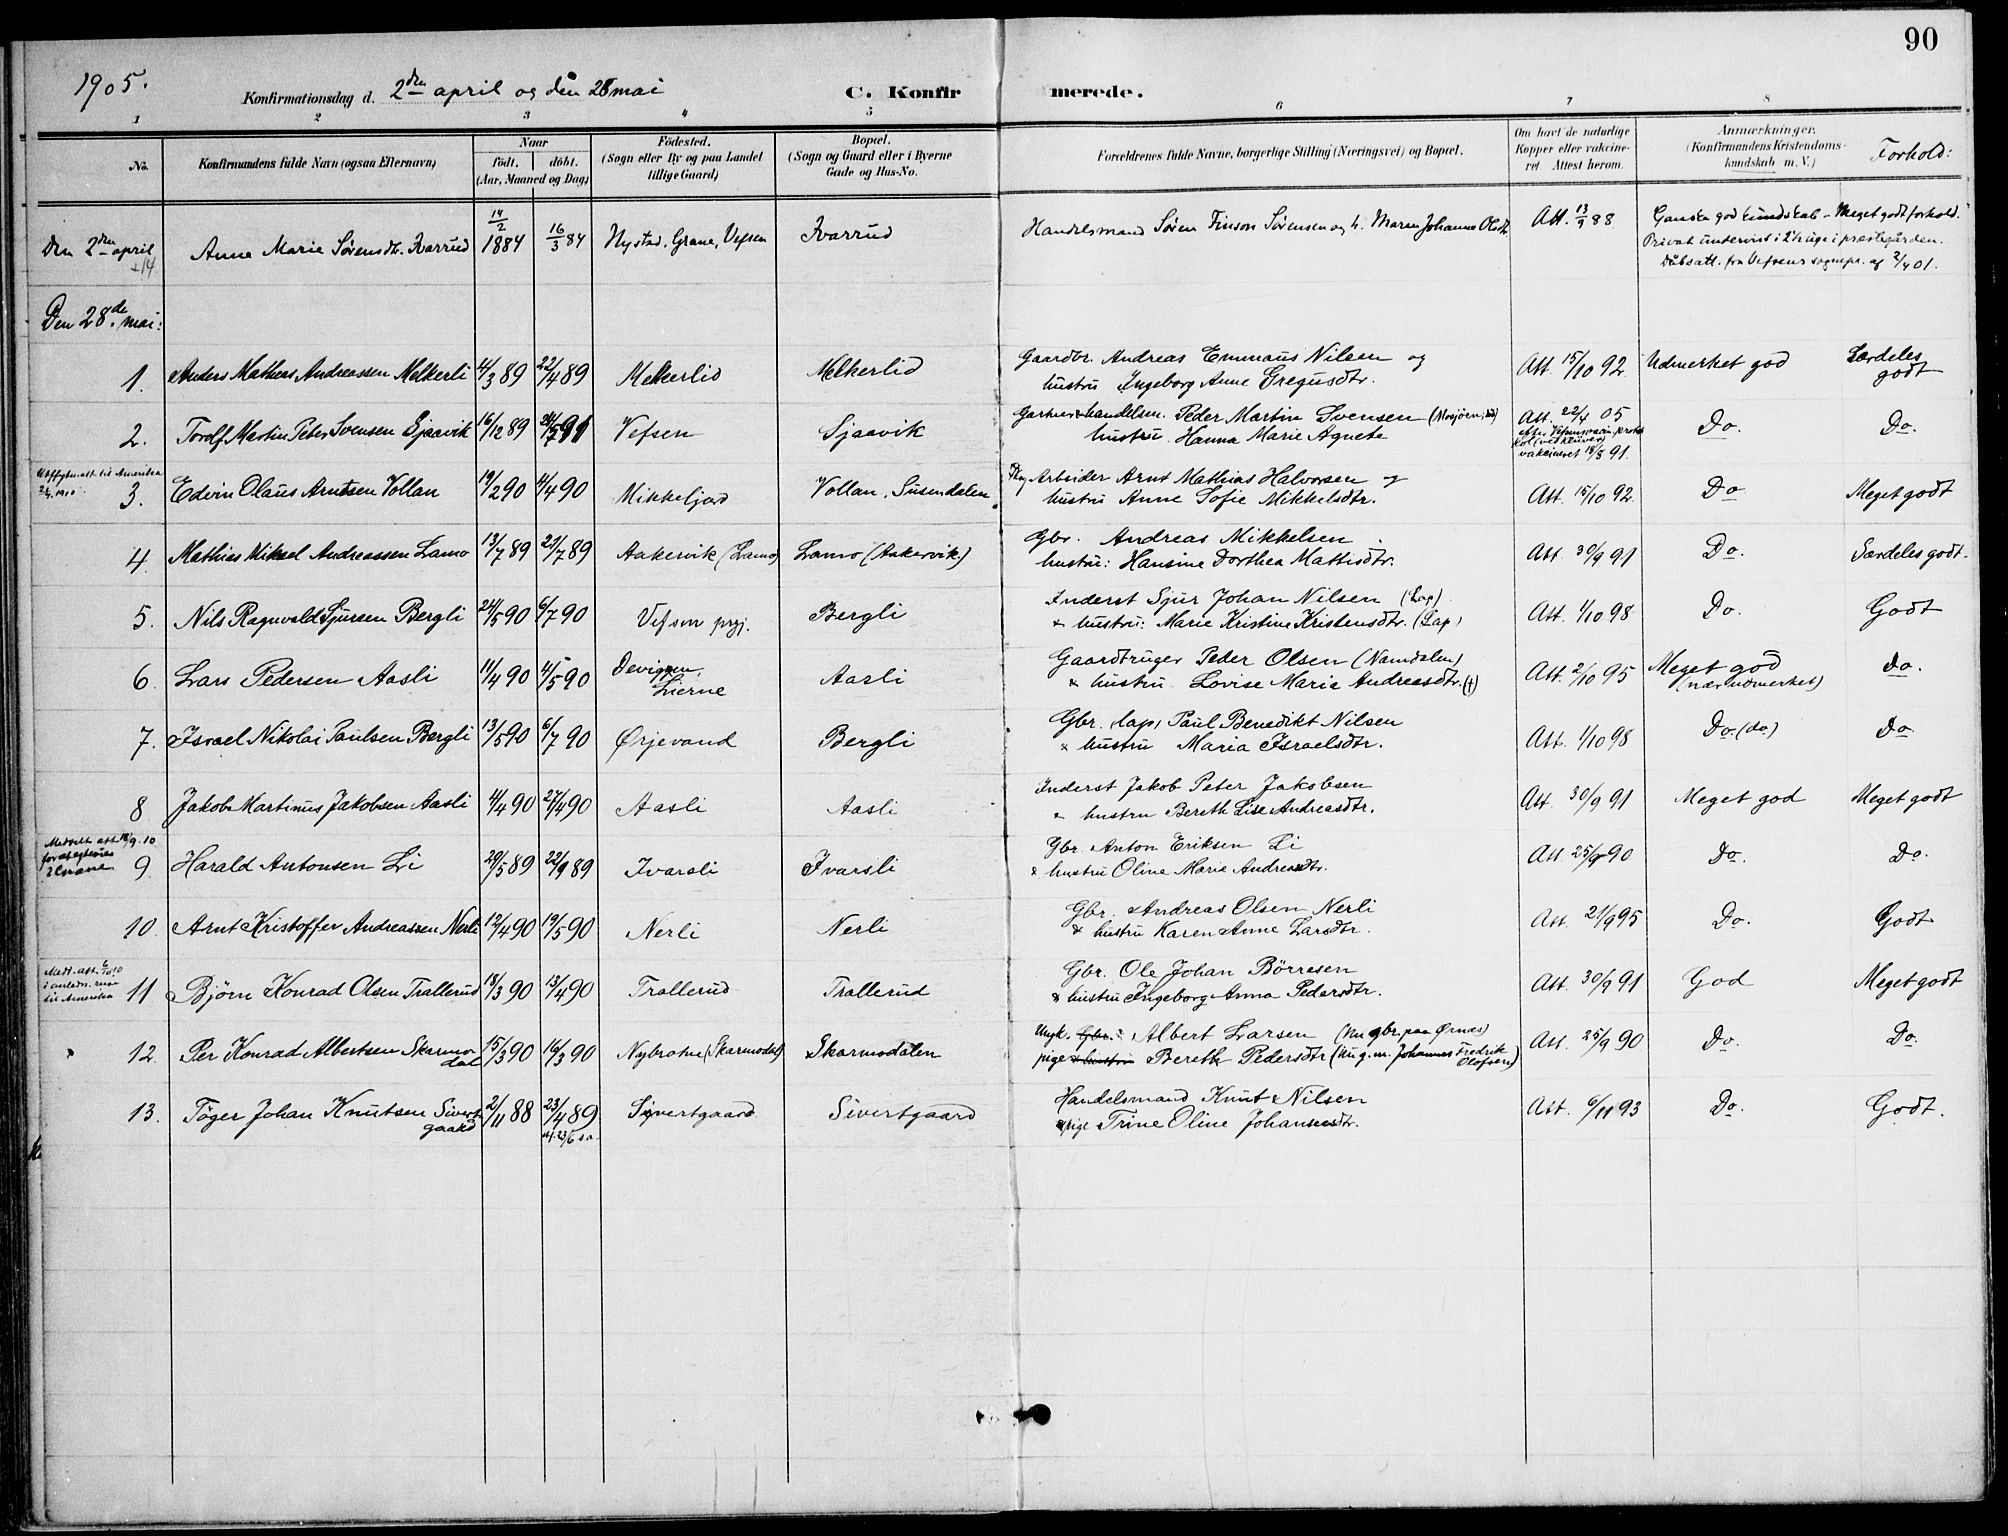 90
1905.
Konfirmationsdag d. 2den april og den 28 mai
C. Konfirmerede.
1 2 3 4 5 6 7 8
No.
Konfirmandens fulde Navn (ogsaa Efternavn)
Naar
födt. döbt.
(Aar, Maaned og Dag)
Födested.
(Sogn eller By og paa Landet
tillige Gaard)
Bopæl.
(Sogn og Gaard eller i Byerne
Gade og Hus-No.
Forældrenes fulde Navne, borgerlige Stilling (Næringsvei) og Bopæl.
Om havt de naturlige
Kopper eller vakcine-
ret. Attest herom.
Anmærkninger.
(Konfirmandens Kristendoms-
kundskab m. V.)
Forhold:
Den 2den april
Anne Marie Sørensdtr. Ivarrud 14/2 1884 16/3 84 Nystad, Grane, Vefsen Ivarrud Handelsmand Søren Finson Sørensen og h. Maren Johanne Olsdtr. Att. 13/9 88 Ganske god kundskab – Meget godt forhold.
Privat undervist i 2 uge i præstegården.
Dåbsatt. fra Vefsens sognepr. af 2/4 01.
Den 28de mai:
1. Anders Mathias Andreassen Melkerli 11/3 89 22/4 89 Melkerlid Melkerlid Gaardbr. Andreas Emmaus Nilsen og
hustru Ingeborg Anne Gregusdtr. Att. 15/10 92 Udmerket god Særdeles
godt
2. Torolf Martin Peter Svensen Sjaavik 16/12 89 24/5 91 Vefsen Sjaavik Gartner & handelsm. Peder Martin Svensen (Mosjøen)
hustru Hanna Marie Agnete Att. 22/4 05
vakcineret 18/8 91. Do. Do.
Udflytn.att. til Amerika
1910
3. Edvin Olaus Arntsen Vollan 19/2 90 11/4 90 Mikkeljord Vollan, Susendalen Arbeider Arnt Mathias Halvorsen og
hustru Anne Sofie Mikkelsdtr. Att. 15/10 92. Do Meget godt
4. Mathias Mikael Andreassen Lamo 13/7 89 21/7 89 Aakervik (Lamo) Lamo (Aakervik) Gbr. Andreas Mikkelsen
hustru: Hansine Dorthea Mattisdtr. Att. 30/9 91 Do. Særdeles godt.
5. Nils Ragnvald Sjursen Bergli 24/5 90 6/7 90 Vefsen prgj. Bergli Inderst Sjur Johan Nilsen (Lap)
& hustru: Marie Kristine Kristensdtr. (Lap) Att. 1/10 98 Do. Godt
6. Lars Pedersen Aasli 11/4 90 4/5 90 Devigen,
Lierne Aasli Gaardbruger Peder Olsen (Namdalen)
& hustru Lovise Maria Andreasdtr. (†) Att. 2/10 95 Meget god
(nær udmerket) Do.
7. Israel Nikolai Paulsen Bergli 13/5 90 6/7 90 Ørjevand Bergli Gbr. (lap) Paul Benedikt Nilsen
& hustru Maria Israelsdtr. Att. 1/10 98 Do. (do) Do.
8 Jakob Martinus Jakobsen Aasli 4/4 90 27/4 90 Aasli Aasli Inderst Jakob Peter Jakobsen
& hustru Bereth Lise Andreasdtr. Att. 30/9 91 Meget god Meget godt
Meddelt att. 18/9.10
for at egtevies
i Grane
9 Harald Antonsen Li 29/5 89 22/9 89 Ivarsli Ivarsli Gbr. Anton Eriksen Li
& hustru Oline Marie Andreasdtr. Att. 25/9 90 Do. Do.
10. Arnt Kristoffer Andreassen Nerli 12/4 90 19/5 90 Nerli Nerli Gbr. Andreas Olsen Nerli
& hustru Karen Anne Larsdtr. Att. 21/9 95 Do. Godt
Medd. att. 6/10 10
i anledn. reise
til Amerika
11 Bjørn Konrad Olsen Trallerud 18/3 90 13/4 90 Trallerud Trallerud Gbr. Ole Johan Börresen
& hustru Ingeborg Anna Pedersdtr. Att. 30/9 91 God Meget godt
12. Per Konrad Albertsen Skarmo-
dal 15/3 90 16/3 90 Nybrotne (Skarmodal) Skarmodalen Ungk. Gbr. Albert Larsen (Nu gbr. paa Ørnæs)
pige & hustru Bereth Pedersdtr (Nu g. m. Johannes Fredrik
Olofsen) Att. 25/9 90 Do. Do.
13. Töger Johan Knutsen Sivert-
gaard 2/11 88 23/4 89 Sivertgaard Sivertgaard Handelsmand Knut Nilsen
& pige Trine Oline Johansesdtr. Att. 6/11 93 Do. Godt.